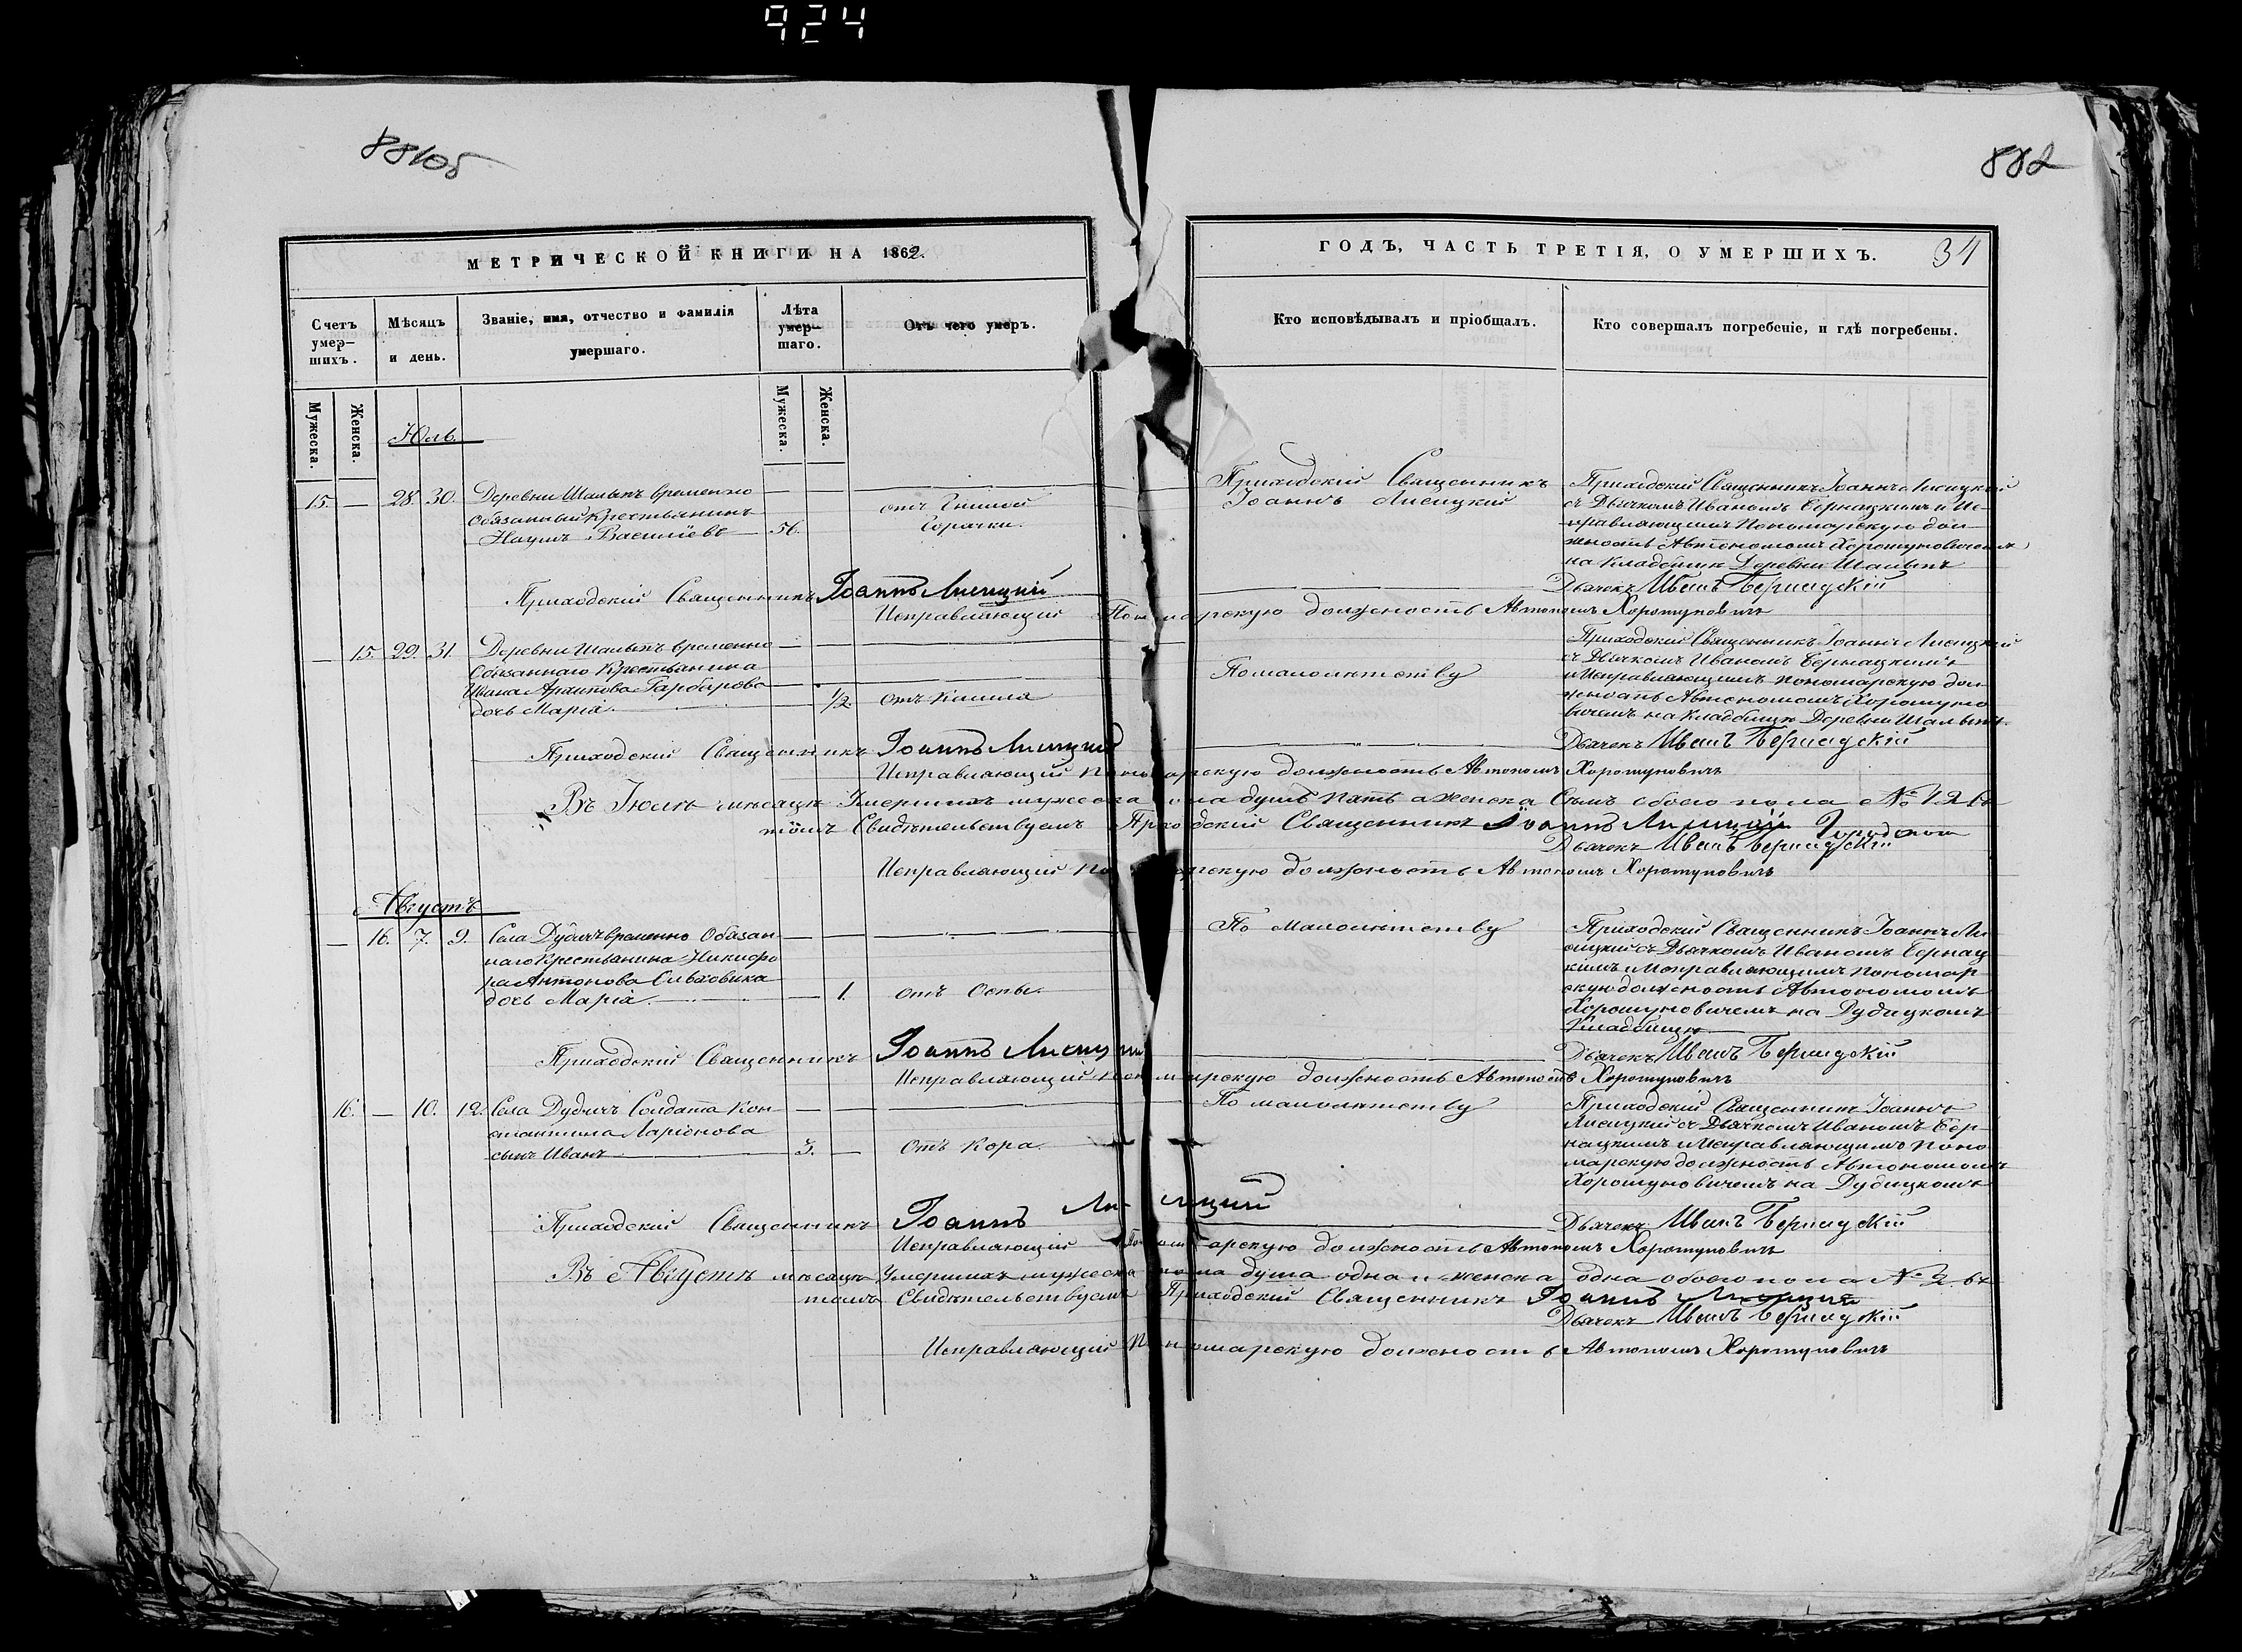 924
882
МЕТРИЧЕСКОЙ КНИГИ НА 1862.
ГОДЪ, ЧАСТЬ ТРЕТІЯ, О УМЕРШИХЪ.
31
Счетъ умер-шихъ.
Мѣсяцъ и день.
Званіе, имя, отчество и фамилія умершаго.
Лѣта умер-шаго.
Отъ чего умеръ.
Кто исповѣдывалъ и пріобщалъ.
Кто совершалъ погребеніе, и гдѣ погребены.
Мужеска.
Женска.
Мужеска.
Женска.
Юль.
15. — 28. 30.
Деревни Шалыпъ временно
обязанный Крестьянинъ
Наумъ Васильевъ 56.
отъ Гнилой
Горячки.
Приходскій Священникъ
Іоаннъ Лисицкій
Приходскій Священникъ Іоаннъ Лисицкій
съ Дьячкомъ Иваномъ Бернацкимъ и Ис-
правляющимъ Пономарскую дол-
жность Автономомъ Хоротуновичемъ
на Кладбищѣ Деревни Шалыпъ
Приходскій Священникъ Іоаннъ Лисицкій
Дьячекъ Иванъ Бернадскій
Исправляющій Пономарскую должность Автономъ Хоротуновичъ
— 15. 29. 31.
Деревни Шалыпъ временно
Обязаннаго Крестьянина
Ивана Архипова Гарбарова
дочь Марія 1/2.
отъ Кашля
По малолѣтству
Приходскій Священникъ Іоаннъ Лисицкій
съ Дьячкомъ Иваномъ Бернацкимъ
и Исправляющимъ пономарскую дол-
жность Автономомъ Хоротуно-
вичемъ на Кладбищѣ Деревни Шалыпъ.
Приходскій Священникъ Іоаннъ Лисицкій
Дьячекъ Иванъ Бернадскій
Исправляющій пономарскую должность Автономъ Хоротуновичъ
Въ Іюлѣ мѣсяцѣ Умершихъ мужеска пола душъ пять а женска Семь обоего пола № 12 въ
томъ Свидѣтельствуемъ Приходскій Священникъ Іоаннъ Лисицкій
Дьячекъ Иванъ Бернадскій
Исправляющій пономарскую должность Автономъ Хоротуновичъ
Августъ
— 16. 7. 9.
Села Дудичъ временно Обязан-
наго Крестьянина Никифо-
ра Антонова
дочь Марія. 1.
отъ Оспы.
По малолѣтству
Приходскій Священникъ Іоаннъ Ли-
сицкій съ Дьячкомъ Иваномъ Бернац-
кимъ и Исправляющимъ пономар-
скую должность Автономомъ
Хоротуновичемъ на Дудицкомъ
Кладбищѣ
Приходскій Священникъ Іоаннъ Лисицкій
Дьячекъ Иванъ Бернадскій
Исправляющій пономарскую должность Автономъ Хоротуновичъ
16. — 10. 12.
Села Дудичъ Солдата Кон-
стантина Ларіонова
сынъ Иванъ 3.
Отъ Кора.
По малолѣтству
Приходскій Священникъ Іоаннъ
Лисицкій съ Дьячкомъ Иваномъ Бер-
нацкимъ и Исправляющимъ Поно-
марскую должность Автономомъ
Хоротуновичемъ на Дудицкомъ
Приходскій Священникъ Іоаннъ Лисицкій
Дьячекъ Иванъ Бернадскій
Исправляющій Пономарскую должность Автономъ Хоротуновичъ
Въ Августѣ мѣсяцѣ Умершихъ мужеска пола душа одна и женска одна обоего пола № 2 въ
томъ Свидѣтельствуемъ Приходскій Священникъ Іоаннъ Лисицкій
Дьячекъ Иванъ Бернадскій
Исправляющій Пономарскую должность Автономъ Хоротуновичъ